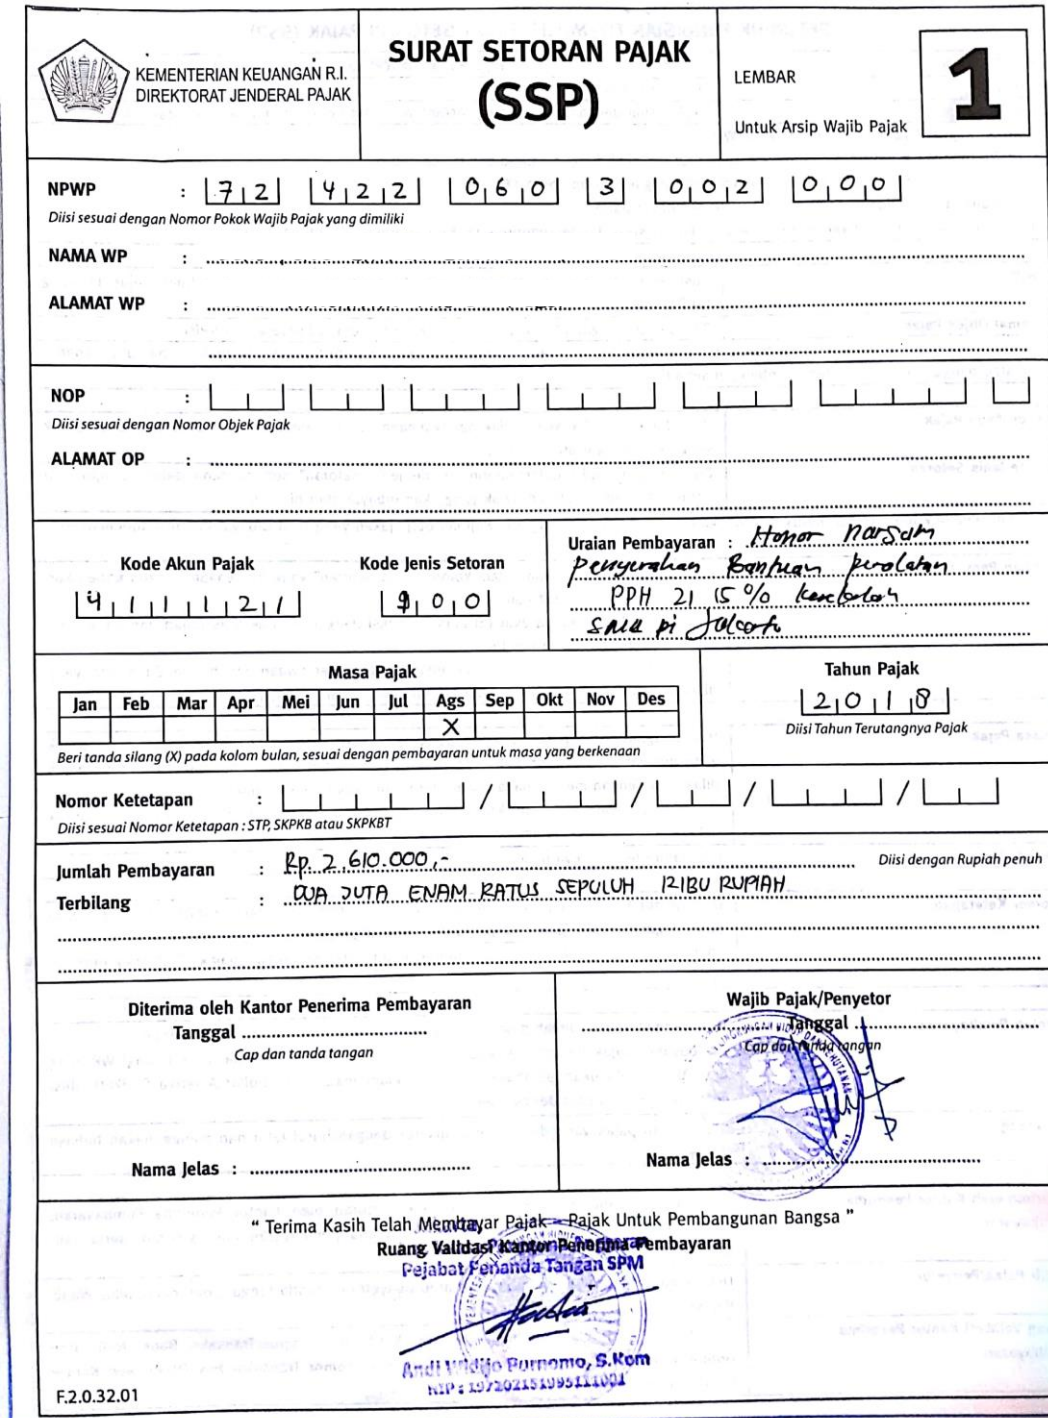 KEMENTERIAN KEUANGAN R.I.
DIREKTORAT JENDERAL PAJAK
SURAT SETORAN PAJAK
(SSP)
LEMBAR
1
Untuk Arsip Wajib Pajak
NPWP : 72 422 060 3 002 000
Diisi sesuai dengan Nomor Pokok Wajib Pajak yang dimiliki
NAMA WP :
ALAMAT WP :
NOP :
Diisi sesuai dengan Nomor Objek Pajak
ALAMAT OP :
Kode Akun Pajak
411121
Kode Jenis Setoran
100
Uraian Pembayaran : Honor narsum
penyerahan Bantuan peralatan
PPH 21 15%
SMK di Jakarta
Masa Pajak
Jan Feb Mar Apr Mei Jun Jul Ags Sep Okt Nov Des
X
Beri tanda silang (X) pada kolom bulan, sesuai dengan pembayaran untuk masa yang berkenaan
Tahun Pajak
2018
Diisi Tahun Terutangnya Pajak
Nomor Ketetapan : / / / /
Diisi sesuai Nomor Ketetapan : STP, SKPKB atau SKPKBT
Jumlah Pembayaran : Rp. 2.610.000,- Diisi dengan Rupiah penuh
Terbilang : DUA JUTA ENAM RATUS SEPULUH RIBU RUPIAH
Diterima oleh Kantor Penerima Pembayaran
Tanggal
Cap dan tanda tangan
Nama Jelas :
Wajib Pajak/Penyetor
Tanggal
Cap dan tanda tangan
Nama Jelas :
" Terima Kasih Telah Membayar Pajak – Pajak Untuk Pembangunan Bangsa "
Ruang Validasi Kantor Penerima Pembayaran
Pejabat Penanda Tangan SPM
Andi Widijo Purnomo, S.Kom
NIP : 197202151995111001
F.2.0.32.01